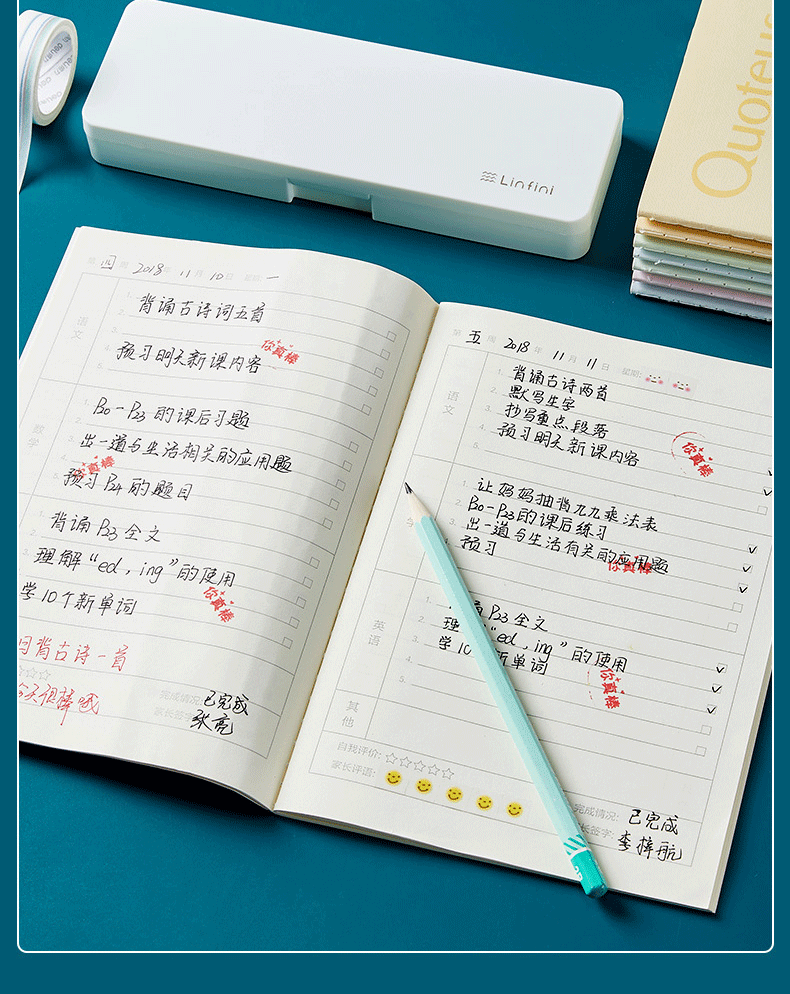 deli
Linfini
Quoteus
第四周 2018年 11月 10日 星期:一
语文
1.
背诵古诗词五首
2.
3.
预习明天新课内容
你真棒
5.
数学
P20-P23的课后习题
出一道与生活相关的应用题
预习P24的题目
你真棒
背诵P23全文
理解“ed,ing”的使用
学10个新单词
你真棒
背古诗一首
今天很棒哦
完成情况:已完成
家长签字:张亮
第五周 2018年 11月 11日 星期:
语文
1. 背诵古诗两首
2. 默写生字
3. 抄写重点段落
4. 预习明天新课内容
5.
你真棒
学
1. 让妈妈抽背九九乘法表
2. P20-P23的课后练习
3. 出一道与生活有关的应用题
4. 预习
你真棒
英语
1. 背诵P23全文
2. 理解“ed,ing”的使用
3. 学10个新单词
4.
5.
你真棒
其他
自我评价:☆☆☆☆☆
家长评语:
完成情况:已完成
家长签字:李梓航